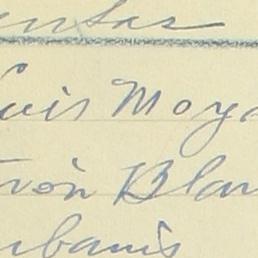 entas
Luis Moya
rvòn Blan
rbanis